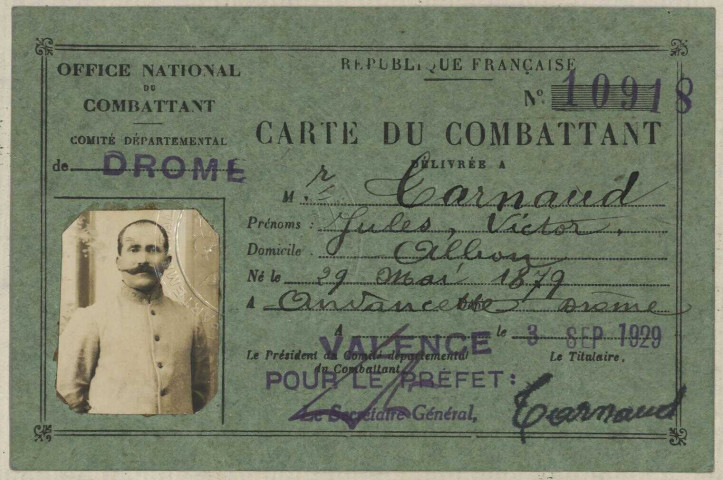 OFFICE NATIONAL
DU
COMBATTANT
COMITÉ DÉPARTEMENTAL
de DROME
REPUBLIQUE FRANÇAISE
No. 10918
CARTE DU COMBATTANT
DÉLIVRÉE A
M.r Carnaud
Prénoms : Jules, Victor.
Domicile : Albon
Né le 29 Mai 1879
A Andancette Drôme
A VALENCE le 3 SEP 1929
Le Président du Comité départemental
du Combattant
Le Titulaire,
POUR LE PRÉFET:
Le Secrétaire Général,
Carnaud